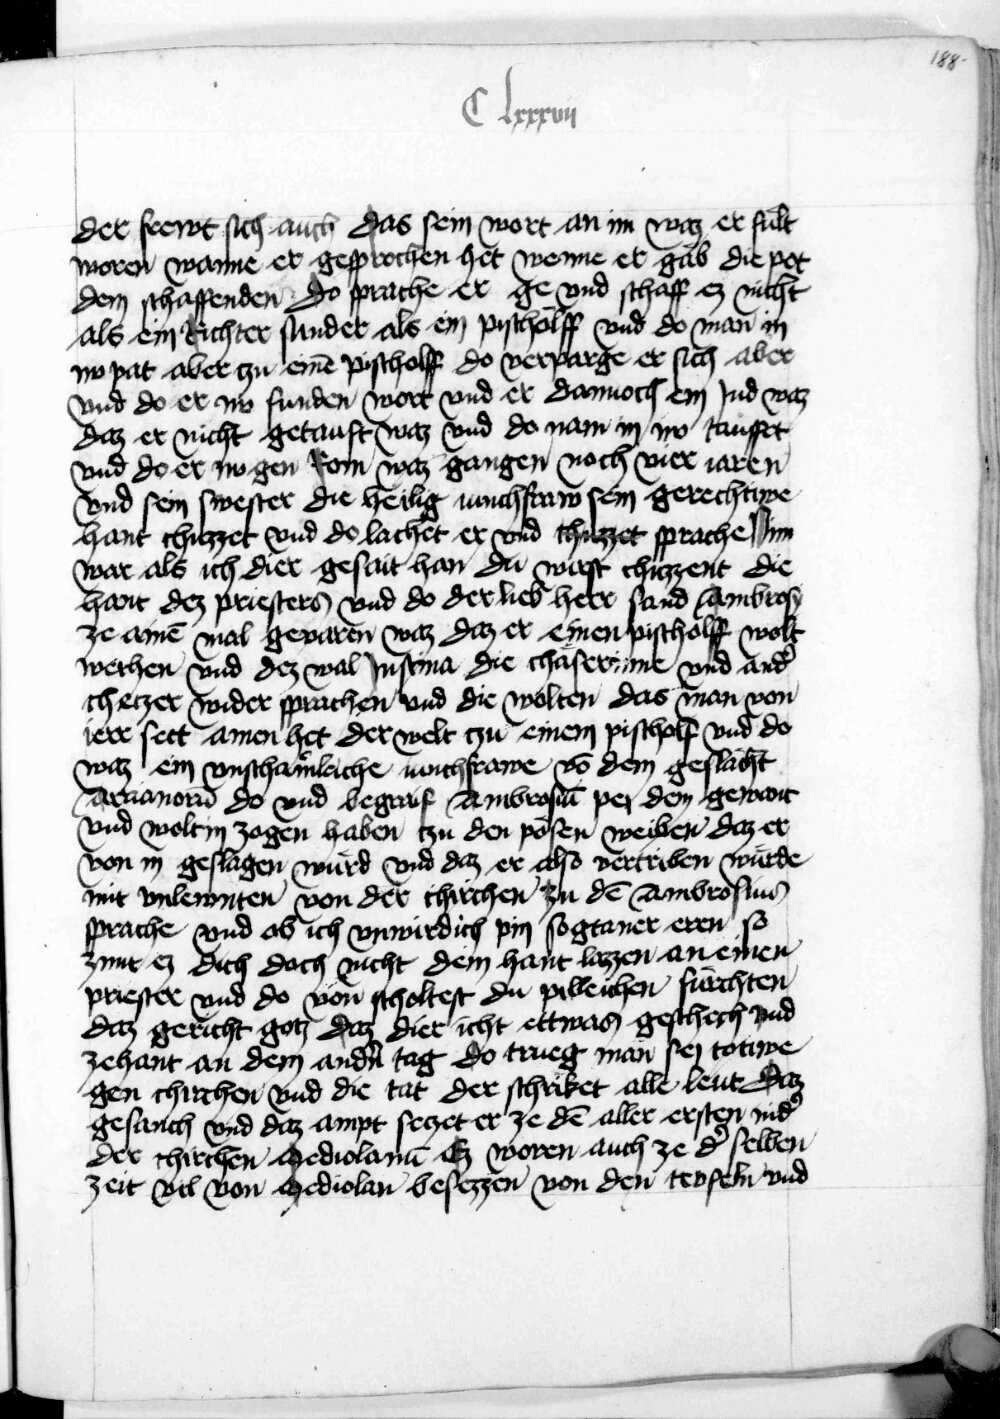 188
C lxxxvii
der frewt sich auch das sein wort an im waz er fült
woren wanne er gesprochen het wenne er gab die pot
dem schaffenden Do sprache er ge vnd schaff ez nicht
als ein Richter sunder als ein pischolff vnd do man in
nv pat aber czu eine̅ pischolff do verparge er sich aber
vnd do er nv funden wort vnd er dannoch ein Jud waz
daz er nicht getauft waz vnd do nam in nv tauffet
vnd do er nv gen Rom waz gangen noch vier iaren
vnd sein swester die heilig iunchfraw sein gerechtiwe
hant chuzzet vnd do lachet er vnd chuzzet sprache Nim
war als ich dier gesait han du wirst chuzzent die
hant dez priesters vnd do der lieb herr sand Ambrosy
ze aine̅ mal gevaren waz daz er einen pischolff wolt
weihen vnd dez wal Justina die chaserinne vnd and̉
checzer wider sprachen vnd die wolten das man von
ierr sect ainen het der welt czu einem pischolf vnd do
waz ein vnschamleiche iunchfrawe vo̅ dem geslächt
Arrianoru̅ do vnd begraif Ambrosiu̅ pei dem gewant
vnd wolt in zogen haben czu den pösen weiben daz er
von in geslagen würd vnd daz er also vertriben würde
mit vnlewnten von der chirchen zu de̅ Ambrosius
sprache vnd ob ich vnwirdich pin sogtaner eren so
zimt ez dich doch nicht dein hant lazzen an einen
priester vnd do von scholtest du pilleichen fürchten
daz gericht gotz daz dier icht ettwas geschech vnd
zehant an dem andn̉ tag do trueg man sei totiwe
gen chirchen vnd die tat der schriket alle leut Daz
gesanch vnd daz ampt seczet er ze de̅ aller ersten in d̉
der chirchen Mediolanu̅ Ez woren auch ze d̉ selben
zeit vil von Mediolan besezzen von den tevfeln vnd